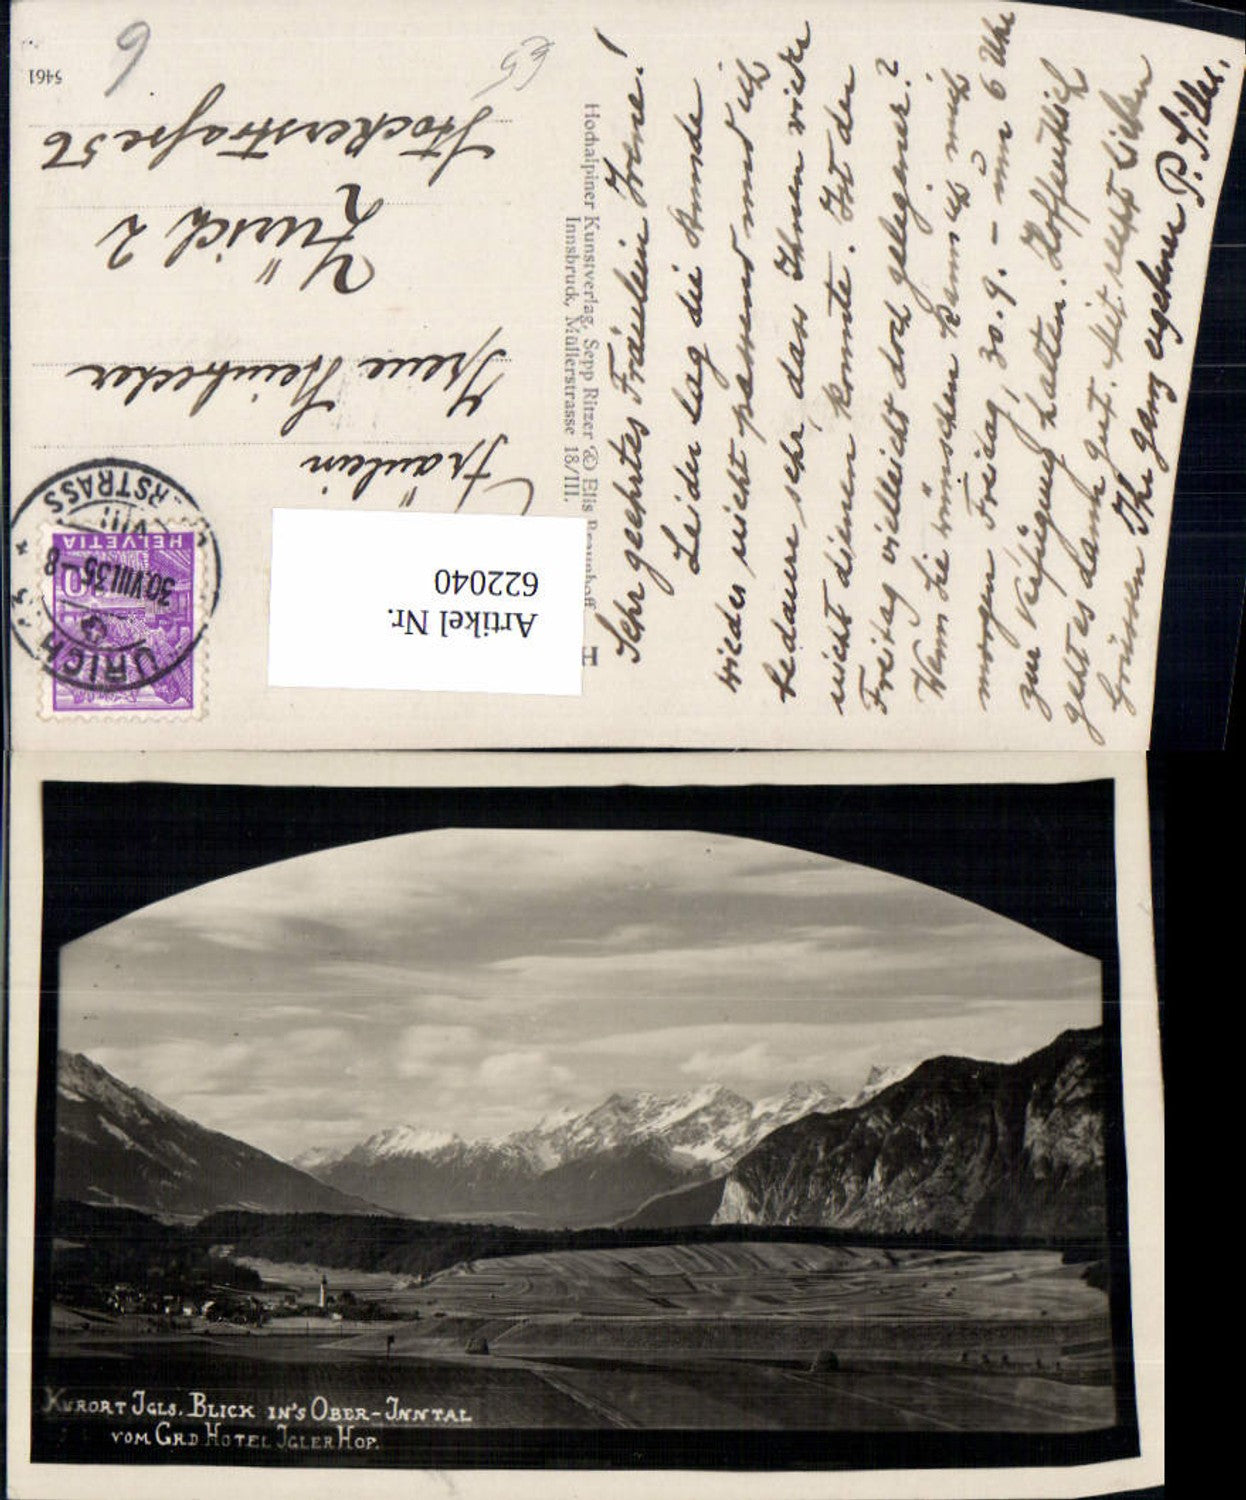 Sehr geehrtes Fräulein Irene!
Leider lag die Stunde
wieder nicht passend und ich
bedaure sehr, dass Ihnen nicht
nicht dienen konnte. Ist der
Freitag vielleicht doch gelegener?
Wenn Sie wünschen kann ich mich
morgen Freitag, 30.9. - um 6 Uhr
zur Verfügung halten. Hoffentlich
geht es dann gut. Mit recht lieben
Grüssen Ihr ganz ergebener P. Siller.
Hochalpiner Kunstverlag, Sepp Ritzer & Elis
Innsbruck, Müllerstrasse 18/III.
Fräulein
Irene
Zürich 2
Stockerstrasse 56
5461
6
HELVETIA
10
30.VIII.35-8
Artikel Nr.
622040
KURORT IGLS. BLICK IN'S OBER-INNTAL
VOM GRD HOTEL IGLERHOF.